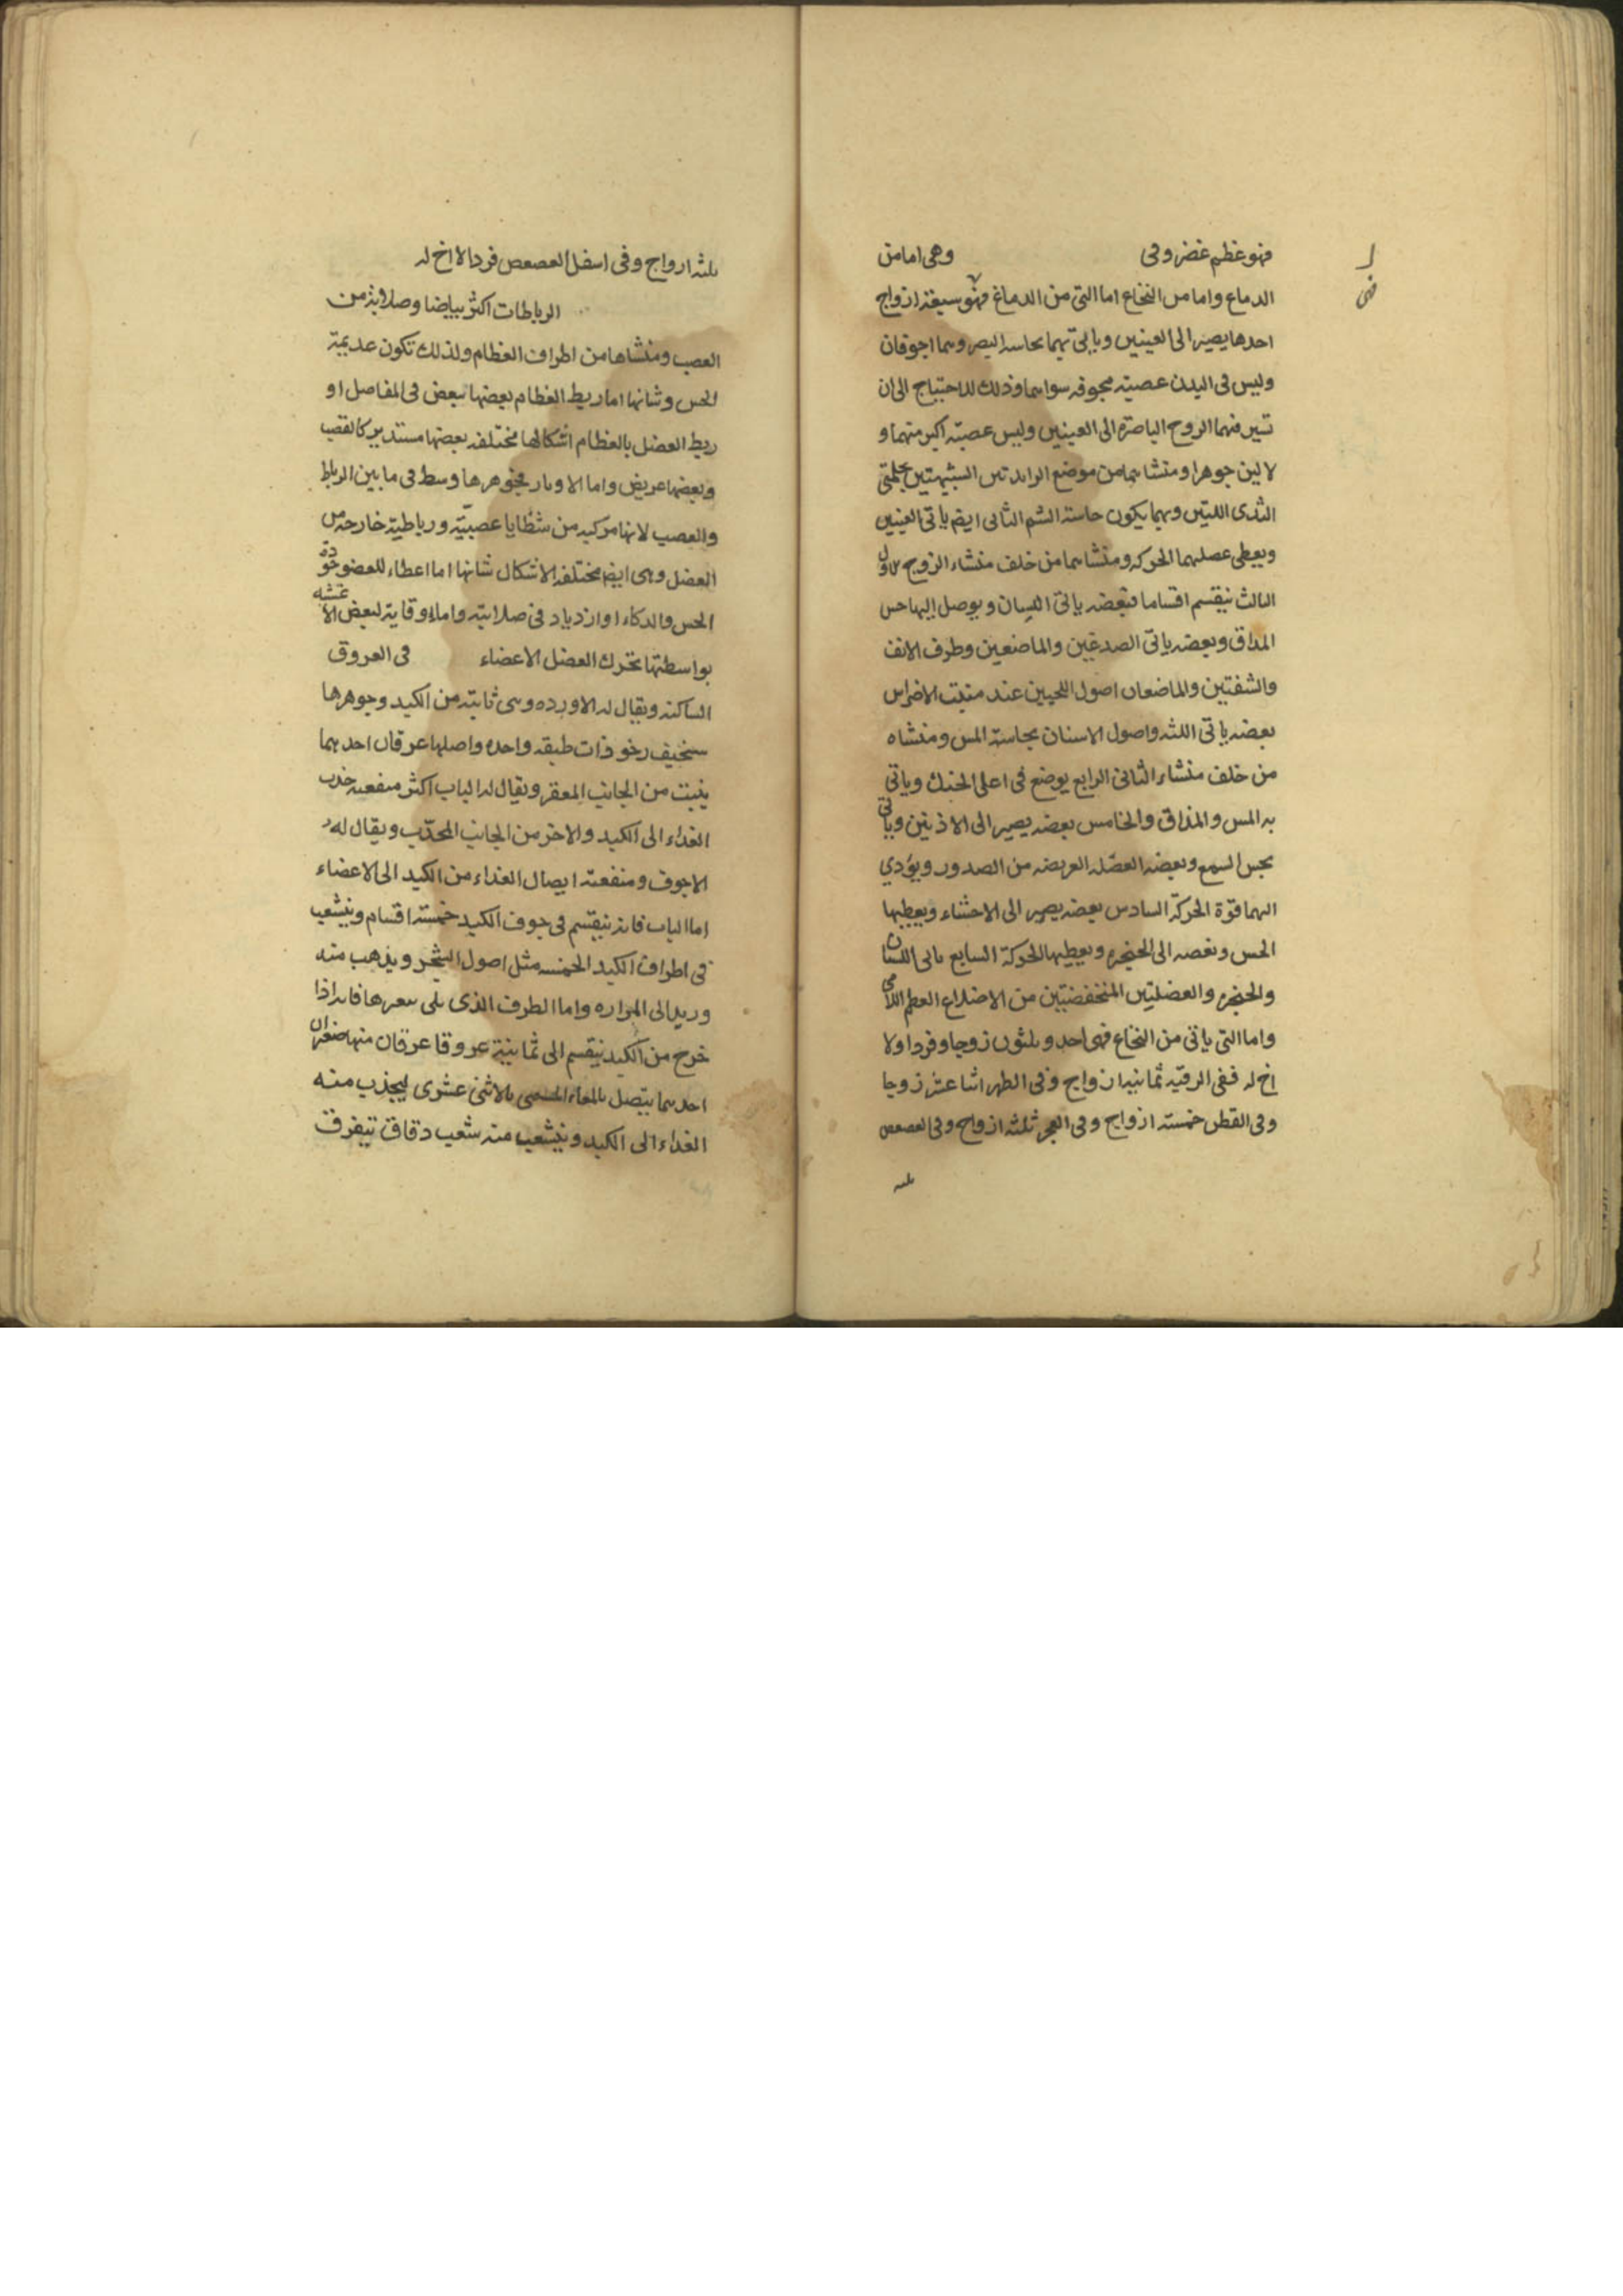 فهو عظم غضروفى وهى اما من
الدماع واما من النخاع اما التى من الدماغ فهو سبعة ازواج
احدها يصير الى العينين وياتى بهما بحاسة البصر وهما اجوفان
وليس فى البدن عصبة مجوفه سواهما وذلك للاحتياج الى ان
تسير فيهما الروح الباصرة الى العينين وليس عصبة اكبر منهما و
لا لين جوهرا ومنشاهما من موضع الزايدتين الشبيهتين بحلمتى
الثدى اللتين وبهما يكون حاسة الشم الثانى ايضا ياتى العينين
ويعطى عضلهما الحركه ومنشاهما من خلف منشاء الزوج الاول
الثالث ينقسم اقساما فبعضه ياتى اللسان ويوصل اليها حس
المذاق وبعضه ياتى الصدغين والماضغين وطرف الانف
والشفتين والماضغان اصول اللحيين عند منبت الاضراس
بعضه ياتى اللثه واصول الاسنان بحاسة المس ومنشاه
من خلف منشاء الثانى الرابع يوضع فى اعلى الحنك وياتى
به المس والمذاق والخامس بعضه يصير الى الاذنين وياتى
بحس السمع وبعضه العضله العريضه من الصدور ويؤدي
اليهما قوة الحركة السادس بعضه يصير الى الاحشاء ويعطيها
الحس وبعضه الى الحنجره ويعطيها الحركة السابع ياتى اللسان
والحنجره والعضلتين المنخفضتين من الاضلاع العظم اللامى
واما التى ياتى من النخاع فهى احد وثلثون زوجا وفردا ولا
اخ له ففى الرقبه ثمانيه ازواج وفى الظهر اثنا عشر زوجا
وفى القطن خمسة ازواج وفى العجز ثلثه ازواج وفى العصعص
ثلثه
ثلثه ازواج وفى اسفل العصعص فردا لا اخ له
الرباطات اكثر بياضا وصلابة من
العصب ومنشاها من اطراف العظام ولذلك تكون عديمة
الحس وشانها اما ربط العظام بعضها ببعض فى المفاصل او
ربط العضل بالعظام اشكالها مختلفه بعضها مستدير كالقصب
وبعضها عريض واما الاوتار فجوهرها وسط فى ما بين الرباط
والعصب لانها مركبه من شظايا عصبيّة ورباطية خارجه من
العضل وهى ايضا مختلفه الاشكال شانها اما اعطاء للعضو جودة
الحس والذكاء او ازدياد فى صلابته واما وقاية لبعض الاغشيه
بواسطتها تحرك العضل الاعضاء فى العروق
الساكنه ويقال له الاورده وهى ثابته من الكبد وجوهرها
سخيف رخو ذات طبقه واحده واصلها عرقان احدهما
ينبت من الجانب المقعر ويقال له الباب اكثر منفعته جذب
الغداء الى الكبد والاخر من الجانب المحدّب ويقال له
الاجوف ومنفعته ايصال الغداء من الكبد الى الاعضاء
اما الباب فانه ينقسم فى جوف الكبد خمسة اقسام ويتشعب
فى اطراف الكبد الخمسه مثل اصول الشجر ويذهب منه
وريد الى المراره واما الطرف الذى يلى مقعرها فانه اذا
خرج من الكبد ينقسم الى ثمانية عروقا عرقان منها صغيران
احدهما يتصل بالمعاء المسمى بالاثنى عشرى ليجذب منه
الغداء الى الكبد ويتشعب منه شعب دقاق تتفرق